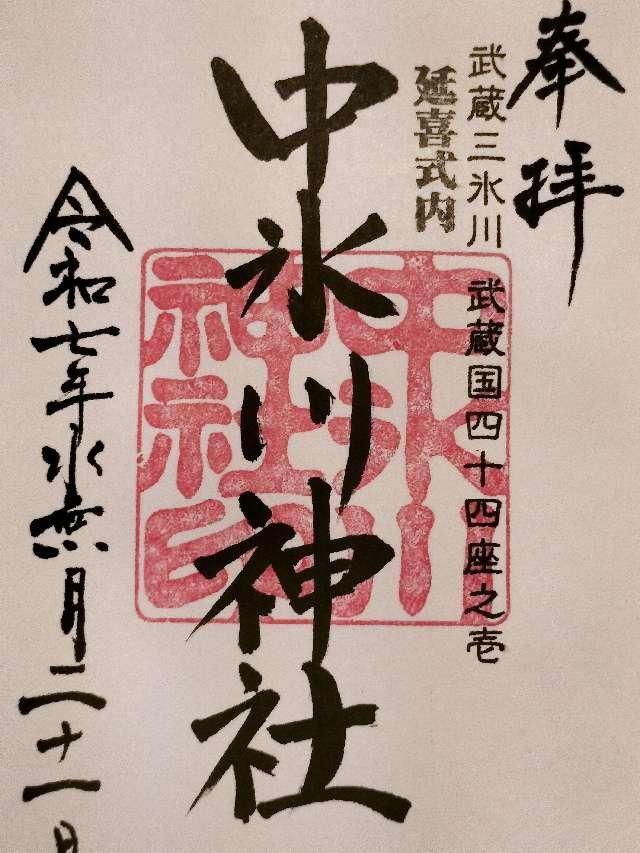 奉拝
武蔵三氷川 武蔵国四十四座之壱
延喜式内
中氷川神社
中氷川
神社印
令和七年水無月二十一日